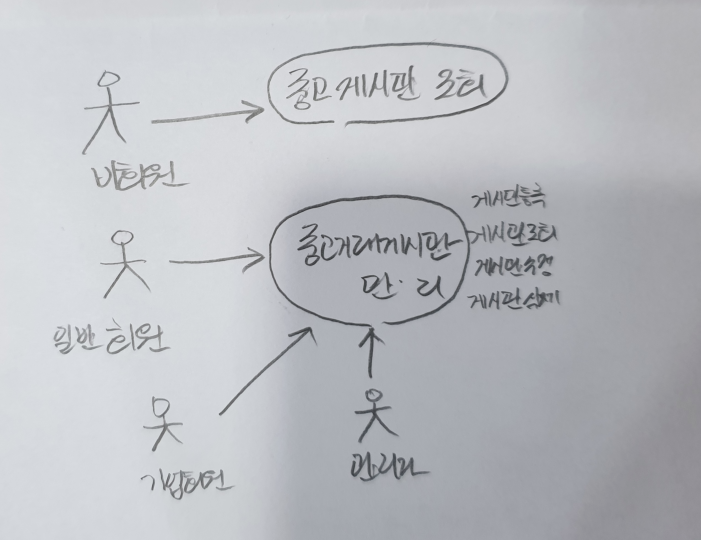 중고게시판 조회
비회원
중고거래게시판
관리
게시판등록
게시판조회
게시판수정
게시판삭제
일반 회원
기업회원
관리자